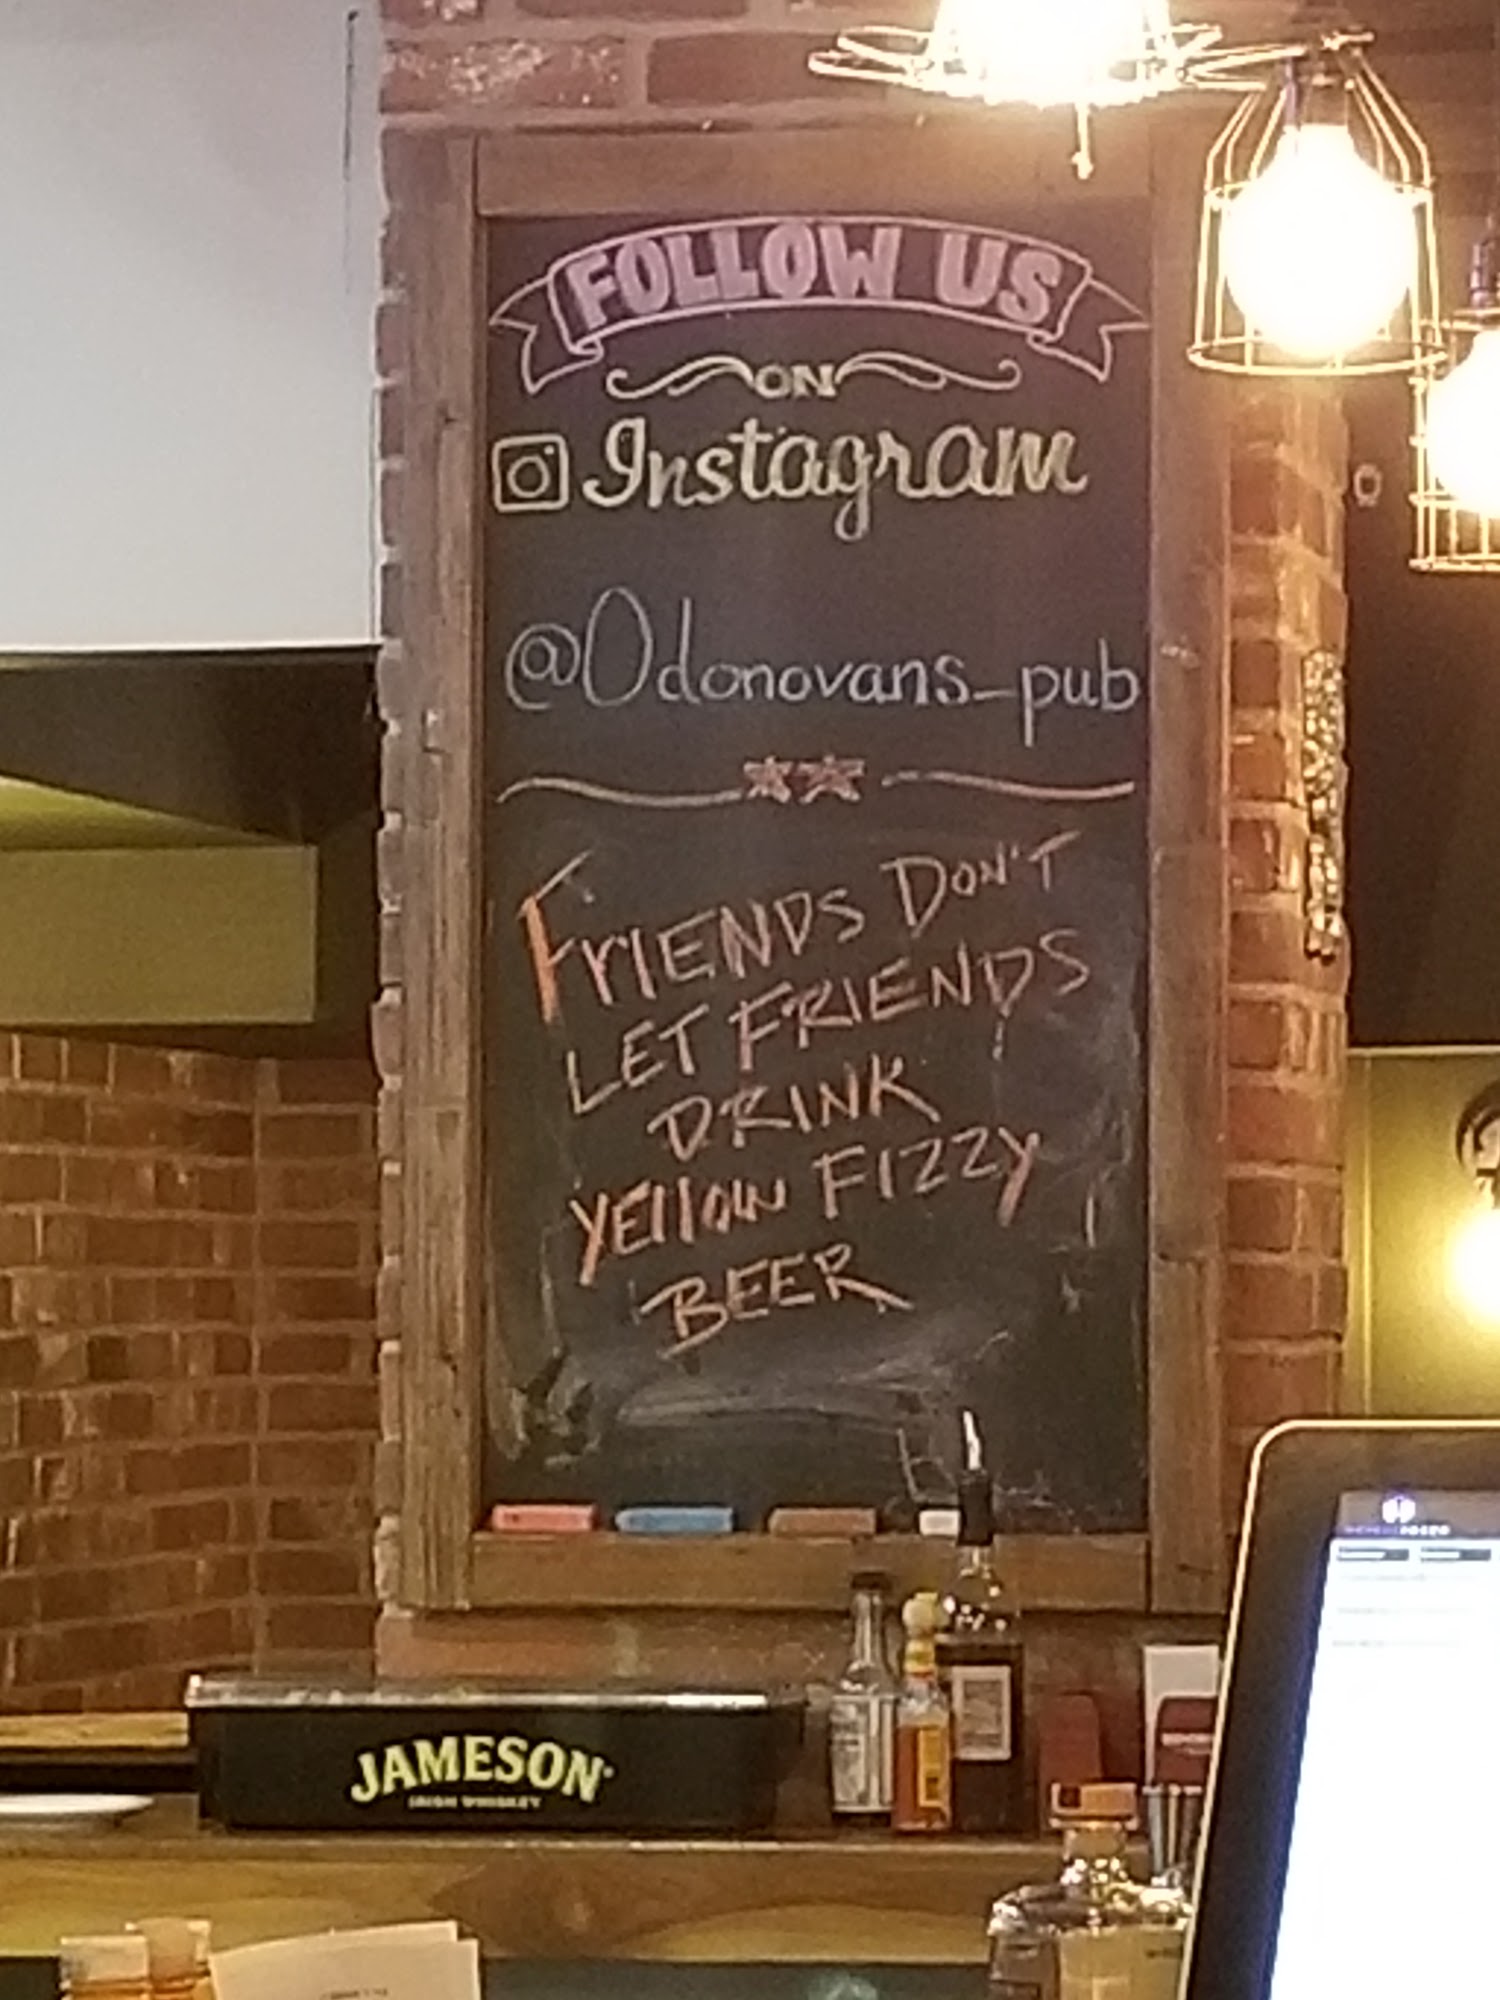 FOLLOW US
ON
Instagram
@Odonovans_pub
FRIENDS DON'T
LET FRIENDS
DRINK
YEllOW FIZZY
BEER
JAMESON
IRISH WHISKEY